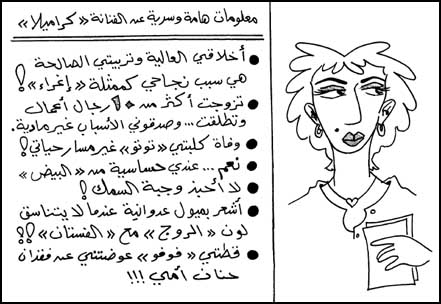 معلومات هامة وسرية عن الفنانة «كراميلا»
● أخلاقي العالية وتربيتي الصالحة
هي سبب نجاحي كممثلة «إغراء»؟!
● تزوجت أكثر من ١٥ رجال أعمال
وتطلقت... وصدقوني الأسباب غير مادية.
● وفاة كلبتي «توتو» غير مسار حياتي؟!
● نعم... عندي حساسية من «البيض»
● لا أحبذ وجبة السمك؟!
● أشعر بميول عدوانية عندما لا يتناسق
لون «الروج» مع «الفستان»؟؟!
● قطتي «فوفو» عوضتني عن فقدان
حنان أمي!!!